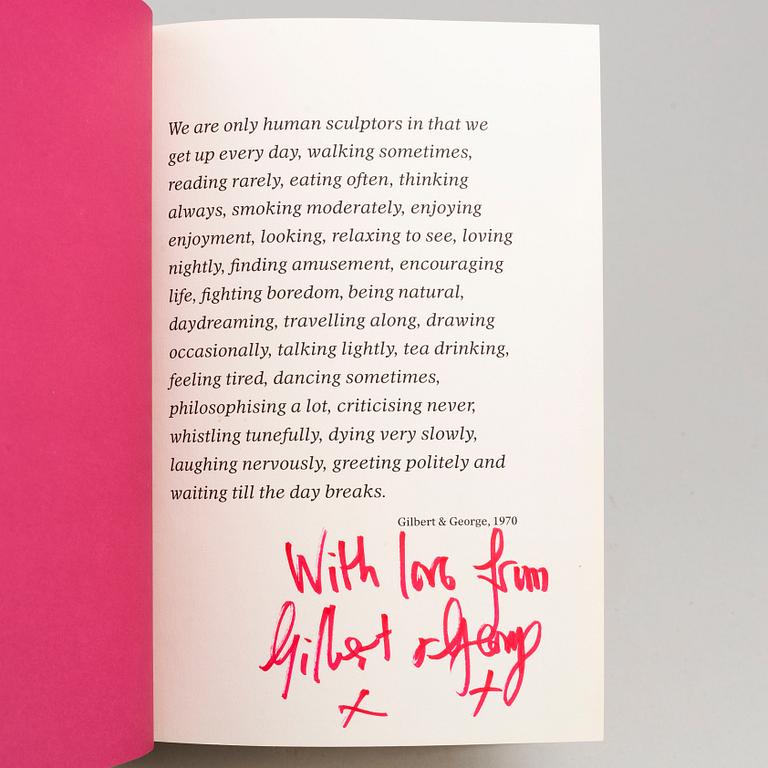 We are only human sculptors in that we
get up every day, walking sometimes,
reading rarely, eating often, thinking
always, smoking moderately, enjoying
enjoyment, looking, relaxing to see, loving
nightly, finding amusement, encouraging
life, fighting boredom, being natural,
daydreaming, travelling along, drawing
occasionally, talking lightly, tea drinking,
feeling tired, dancing sometimes,
philosophising a lot, criticising never,
whistling tunefully, dying very slowly,
laughing nervously, greeting politely and
waiting till the day breaks.
Gilbert & George, 1970
With love from
Gilbert & George
x x